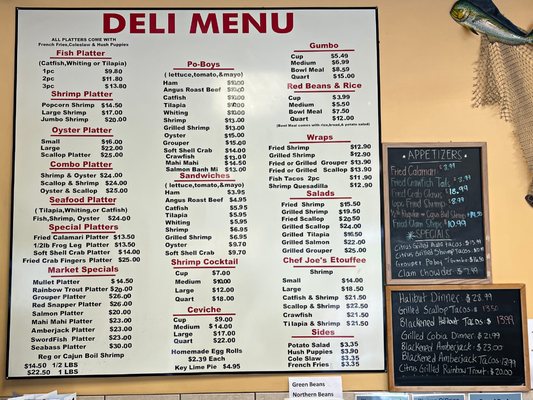 DELI MENU
ALL PLATTERS COME WITH
French Fries,Coleslaw & Hush Puppies
Fish Platter
(Catfish,Whiting or Tilapia)
1pc $9.80
2pc $11.80
3pc $13.80
Shrimp Platter
Popcorn Shrimp $14.50
Large Shrimp $17.00
Jumbo Shrimp $20.00
Oyster Platter
Small $16.00
Large $22.00
Scallop Platter $25.00
Combo Platter
Shrimp & Oyster $24.00
Scallop & Shrimp $24.00
Oyster & Scallop $25.00
Seafood Platter
(Tilapia,Whiting,or Catfish)
Fish,Shrimp,Oyster $24.00
Special Platters
Fried Calamari Platter $13.50
1/2lb Frog Leg Platter $13.50
Soft Shell Crab Platter $14.00
Fried Crab Fingers Platter $25.00
Market Specials
Mullet Platter $14.50
Rainbow Trout Platter $20.00
Grouper Platter $26.00
Red Snapper Platter $26.00
Salmon Platter $20.00
Mahi Mahi Platter $23.00
Amberjack Platter $23.00
SwordFish Platter $23.00
Seabass Platter $30.00
Reg or Cajun Boil Shrimp
$14.50 1/2 LBS
$22.50 1 LBS
Po-Boys
( lettuce,tomato,&mayo)
Ham $10.00
Angus Roast Beef $10.00
Catfish $10.00
Tilapia $10.00
Whiting $10.00
Shrimp $13.00
Grilled Shrimp $13.00
Oyster $15.00
Grouper $15.00
Soft Shell Crab $14.00
Crawfish $13.00
Mahi Mahi $14.50
Salmon Banh Mi $13.00
Sandwiches
( lettuce,tomato,&mayo)
Ham $3.95
Angus Roast Beef $4.95
Catfish $5.95
Tilapia $5.95
Whiting $5.95
Shrimp $6.95
Grilled Shrimp $6.95
Oyster $9.70
Soft Shell Crab $9.70
Shrimp Cocktail
Cup $7.00
Medium $10.00
Large $12.00
Quart $18.00
Ceviche
Cup $9.00
Medium $14.00
Large $17.00
Quart $22.00
Homemade Egg Rolls
$2.39 Each
Key Lime Pie $4.95
Gumbo
Cup $5.49
Medium $6.99
Bowl Meal $8.59
Quart $15.00
Red Beans & Rice
Cup $3.99
Medium $5.50
Bowl Meal $7.50
Quart $12.00
(Bowl Meal comes with rice,bread,& potato salad)
Wraps
Fried Shrimp $12.90
Grilled Shrimp $12.90
Fried or Grilled Grouper $13.90
Fried or Grilled Scallop $13.90
Fish Tacos 2pc $11.90
Shrimp Quesadilla $12.90
Salads
Fried Shrimp $15.50
Grilled Shrimp $19.50
Fried Scallop $20.50
Grilled Scallop $24.00
Grilled Tilapia $16.50
Grilled Salmon $22.00
Grilled Grouper $25.00
Chef Joe's Etouffee
Shrimp
Small $14.00
Large $18.50
Catfish & Shrimp $21.50
Scallop & Shrimp $22.50
Crawfish $21.50
Tilapia & Shrimp $21.50
Sides
Potato Salad $3.35
Hush Puppies $3.90
Cole Slaw $3.35
French Fries $3.35
Green Beans
Northern Beans
APPETIZERS
Fried Calamari
Fried Crawfish Tails
Fried Crab Claws $18.99
Fried Shrimp $8.99
Fried Clam Strips $10.99
SPECIALS
Citrus Grilled
Citrus Grilled Shrimp
Grouper Poboy $14.56
Clam Chowder $7.99
Halibut Dinner $28.99
Grilled Scallop Tacos $13.50
Blackened Halibut Tacos $13.99
Grilled Cobia Dinner $21.99
Blackened Amberjack $23.00
Blackened Amberjack Tacos $13.99
Citrus Grilled Rainbow Trout $20.00